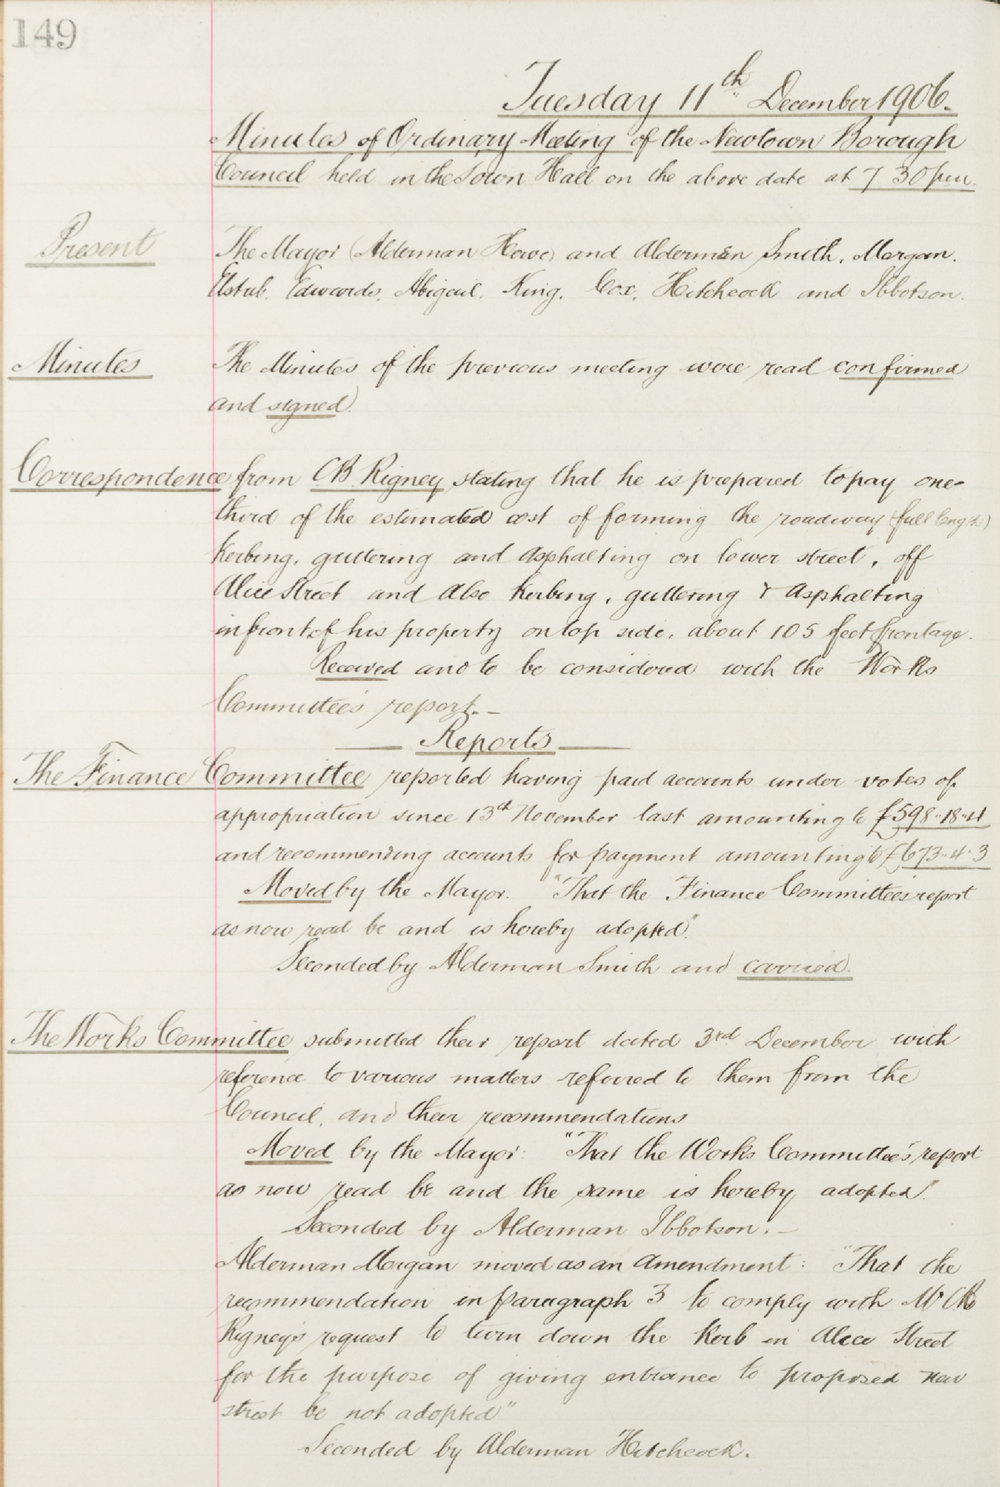 149
Tuesday 11th December 1906.
Minutes of Ordinary Meeting of the Newtown Borough
Council held in the Town Hall on the above date at 7 30 pm.
Present The Mayor (Alderman Howe) and Aldermen Smith, Morgan,
Elstub, Edwards, Abigail, King, Cox, Hitchcock and Ibbotson.
Minutes The Minutes of the previous meeting were read confirmed
and signed.
Correspondence from CB. Rigney stating that he is prepared to pay one-
third of the estimated cost of forming the roadway (full length)
Kerbing, guttering and asphalting on lower street, off
Alice Street and also Kerbing, guttering & asphalting
in front of his property on top side, about 105 feet frontage.
Received and to be considered with the Works
Committee's report.—
— Reports —
The Finance Committee reported having paid accounts under votes of
appropriation since 13th November last amounting to £598-18-4
and recommending accounts for payment amounting to £673-4-3
Moved by the Mayor: "That the Finance Committee's report
as now read be and is hereby adopted".
Seconded by Alderman Smith and carried.
The Works Committee submitted their report dated 3rd December with
reference to various matters referred to them from the
Council, and their recommendations
Moved by the Mayor: "That the Works Committee's report
as now read be and the same is hereby adopted".
Seconded by Alderman Ibbotson.—
Alderman Morgan moved as an amendment: "That the
recommendation in paragraph 3 to comply with Mr CB
Rigney's request to turn down the Kerb in Alice Street
for the purpose of giving entrance to proposed new
street be not adopted"
Seconded by Alderman Hitchcock.